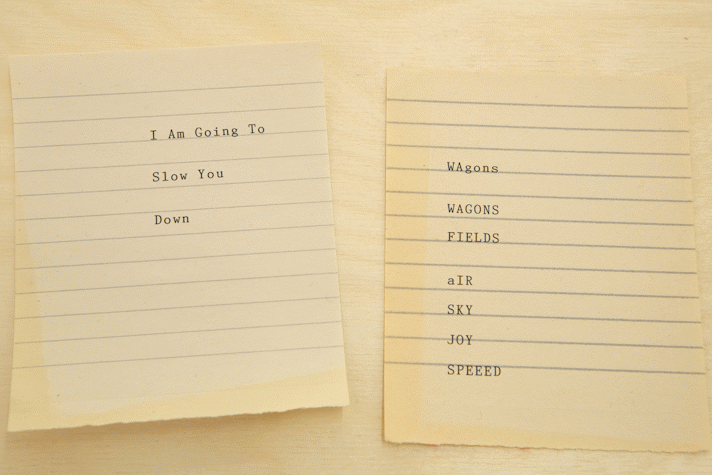 I Am Going To
Slow You
Down
WAgons
WAGONS
FIELDS
aIR
SKY
JOY
SPEEED